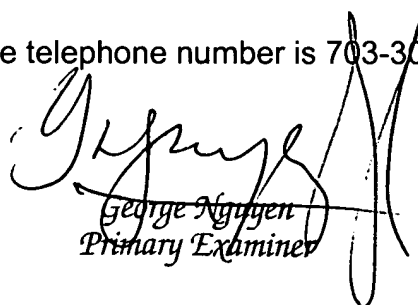 e telephone number is 703-30
George Nguyen
Primary Examiner